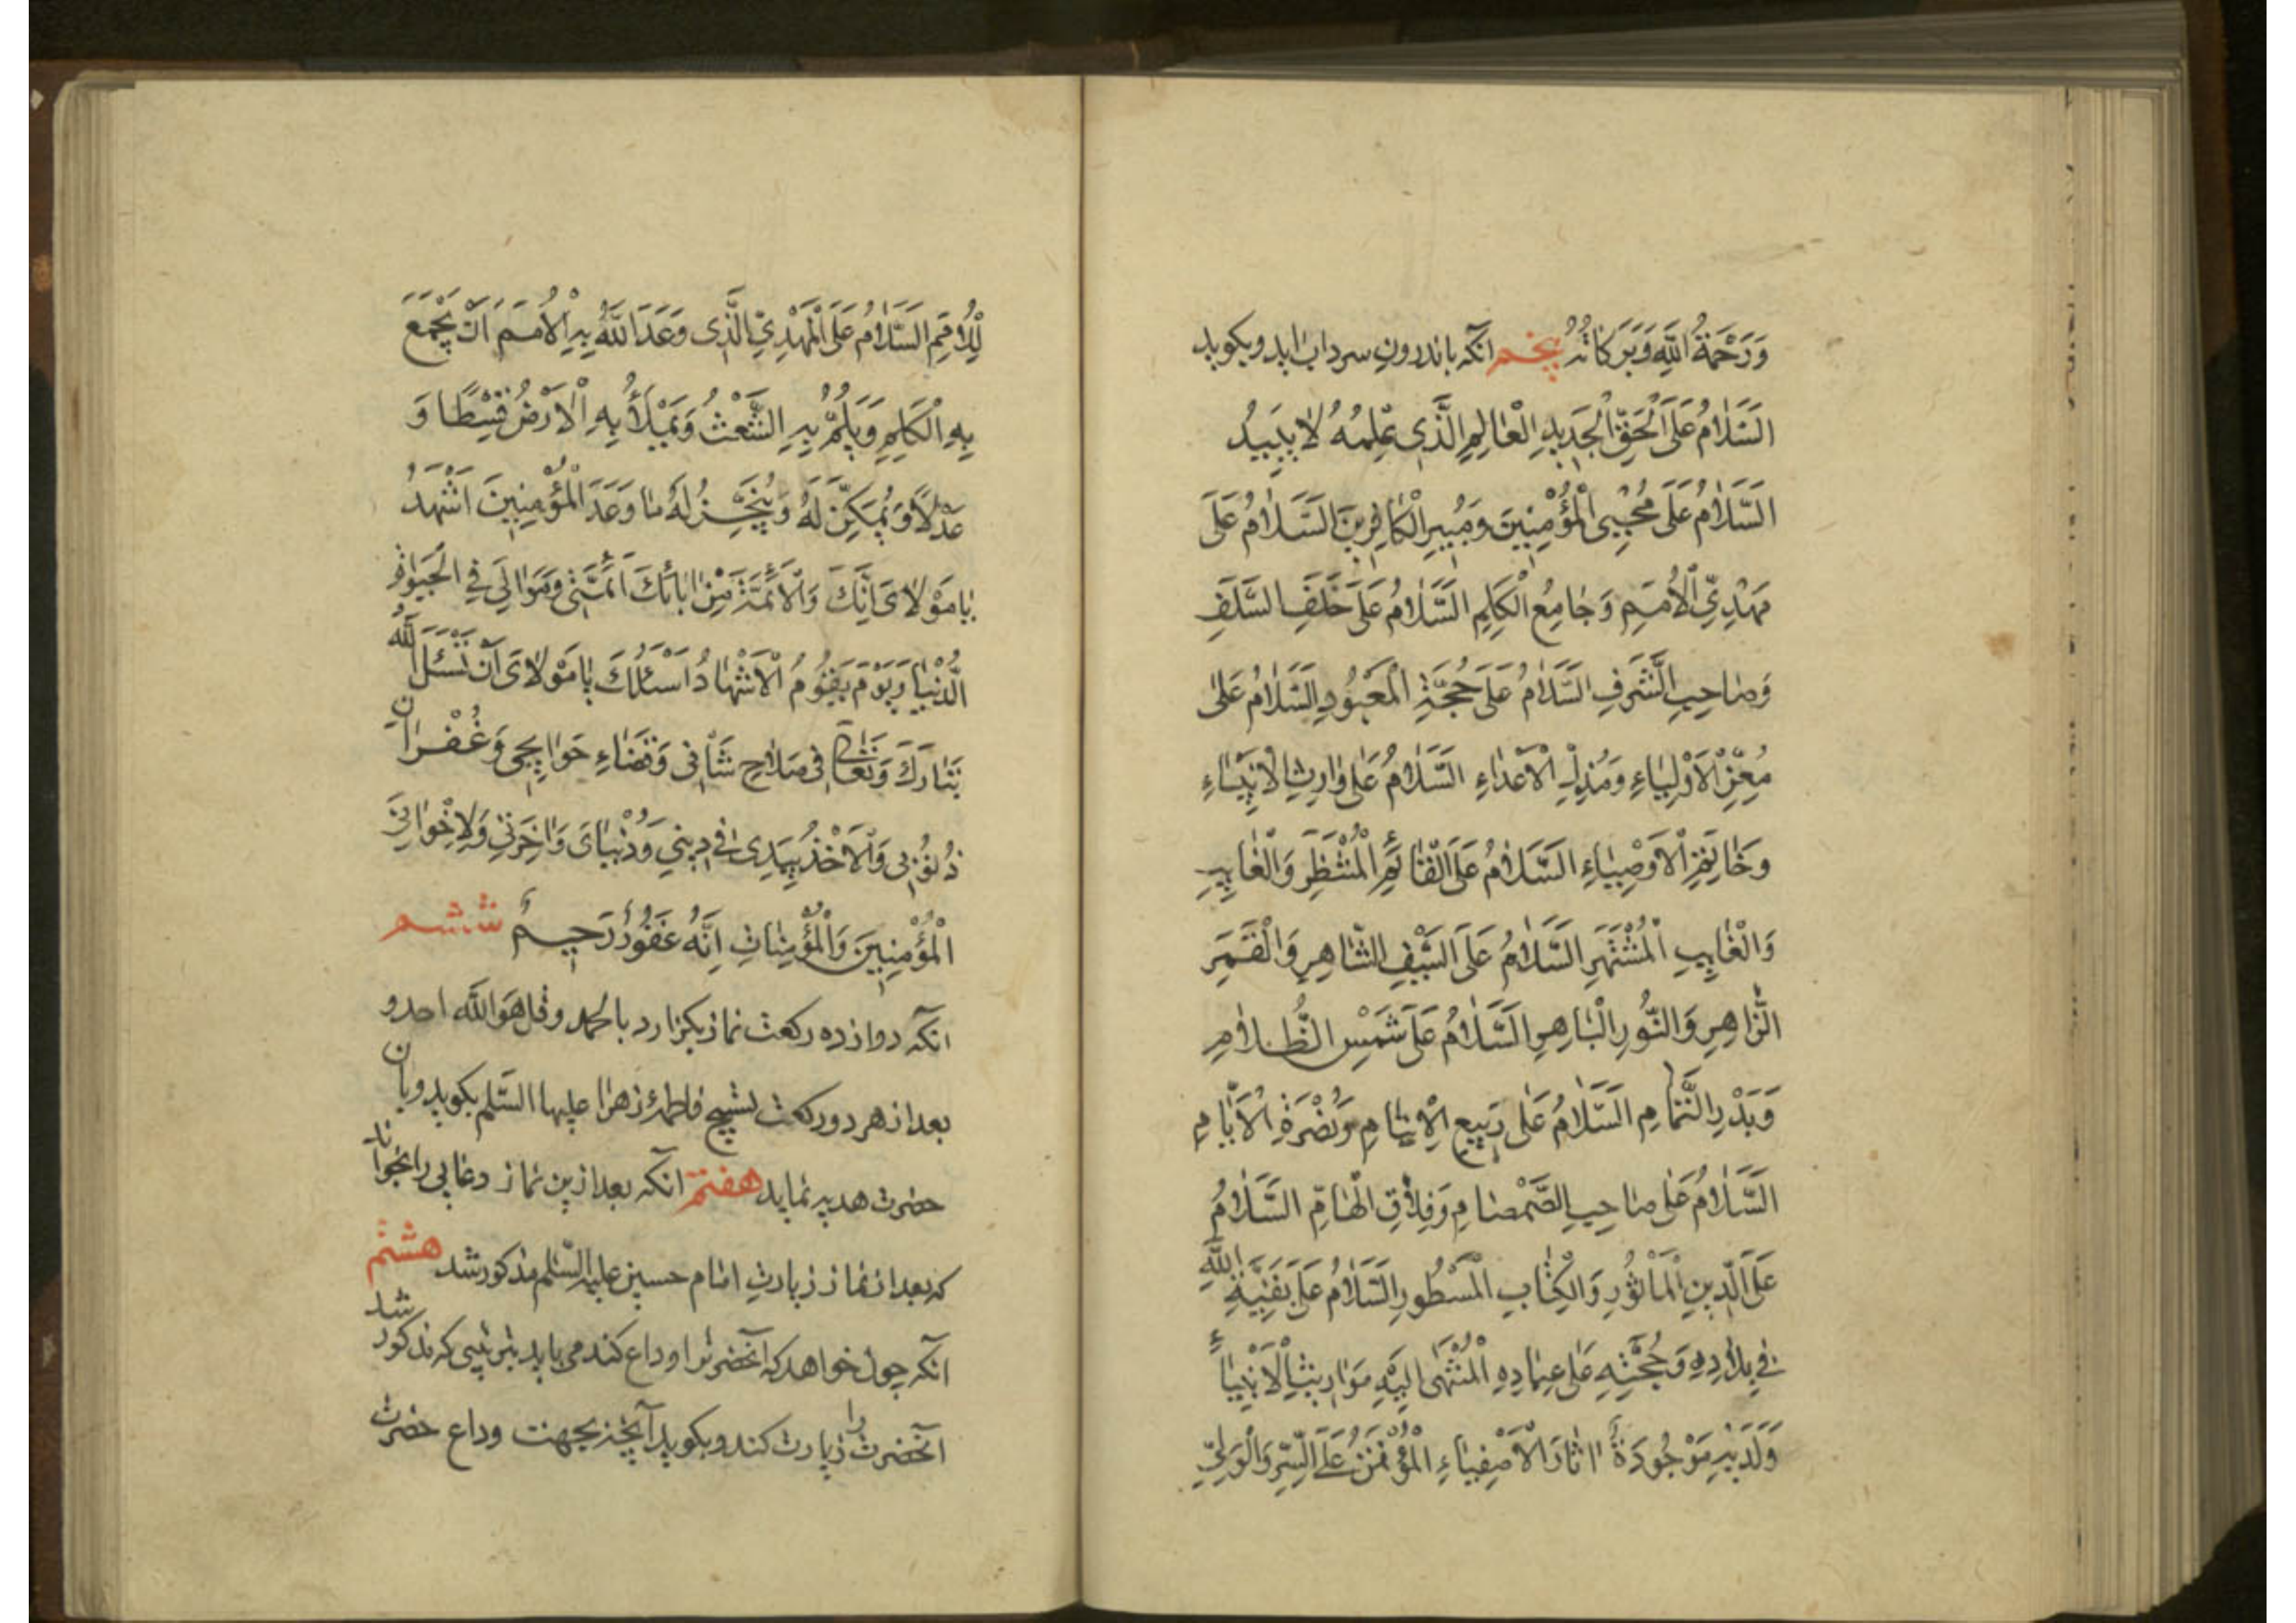 وَرَحْمَةُ اللَّهِ وَبَرَكَاتُهُ پنجم انکه باندرون سرداب اید و بکوید
اَلسَّلٰامُ عَلَى الْحَقِّ الْجَدِيدِ الْعٰالِمِ الَّذِى عِلْمُهُ لٰا يَبِيدُ
اَلسَّلٰامُ عَلٰى مُحْيِى الْمُؤْمِنِينَ وَمُبِيرِ الْكٰافِرِينَ اَلسَّلٰامُ عَلٰى
مَهْدِىِّ الْاُمَمِ وَجٰامِعِ الْكَلِمِ اَلسَّلٰامُ عَلٰى خَلَفِ السَّلَفِ
وَصٰاحِبِ الشَّرَفِ اَلسَّلٰامُ عَلٰى حُجَّةِ الْمَعْبُودِ اَلسَّلٰامُ عَلٰى
مُعِزِّ الْاَوْلِيٰاءِ وَمُذِلِّ الْاَعْدٰاءِ اَلسَّلٰامُ عَلٰى وٰارِثِ الْاَنْبِيٰاءِ
وَخٰاتِمِ الْاَوْصِيٰاءِ اَلسَّلٰامُ عَلَى الْقٰائِمِ الْمُنْتَظَرِ وَالْغٰايِبِ
وَالْغٰايِبِ الْمُشْتَهَرِ اَلسَّلٰامُ عَلَى السَّيْفِ الشّٰاهِرِ وَالْقَمَرِ
الزّٰاهِرِ وَالنُّورِ الْبٰاهِرِ اَلسَّلٰامُ عَلٰى شَمْسِ الظَّلٰامِ
وَبَدْرِ التَّمٰامِ اَلسَّلٰامُ عَلٰى رَبِيعِ الْاِيتٰامِ وَنُضْرَةِ الْاَيّٰامِ
اَلسَّلٰامُ عَلٰى صٰاحِبِ الصَّمْصٰامِ وَفِلٰاقِ الْهٰامِّ اَلسَّلٰامُ
عَلَى الدِّينِ الْمَأْثُورِ وَالْكِتٰابِ الْمَسْطُورِ اَلسَّلٰامُ عَلٰى بَقِيَّةِ اللّٰهِ
فِى بِلٰادِهِ وَحُجَّتِهِ عَلٰى عِبٰادِهِ الْمُنْتَهٰى اِلَيْهِ مَوٰارِيثُ الْاَنْبِيٰاءِ
وَلَدَيْهِ مَوْجُودَةٌ اٰثٰارُ الْاَصْفِيٰاءِ الْمُؤْتَمَنِ عَلَى السِّرِّ وَالْوَلِىِّ
لِلْاُمَمِ اَلسَّلٰامُ عَلَى الْمَهْدِىِّ الَّذِى وَعَدَ اللّٰهُ بِهِ الْاُمَمَ اَنْ يَجْمَعَ
بِهِ الْكَلِمَ وَيَلُمَّ بِهِ الشَّعْثَ وَيَمْلَأَ بِهِ الْاَرْضَ قِسْطًا وَ
عَدْلًا وَيُمَكِّنَ لَهُ وَيُنْجِزَ لَهُ مٰا وَعَدَ الْمُؤْمِنِينَ اَشْهَدُ
يٰا مَوْلٰاىَ اَنَّكَ وَالْاَئِمَّةَ مِنْ اٰبٰائِكَ اَئِمَّتِى وَمَوٰالِىَ فِى الْحَيٰوةِ
الدُّنْيٰا وَيَوْمَ يَقُومُ الْاَشْهٰادُ اَسْئَلُكَ يٰا مَوْلٰاىَ اَنْ تَسْئَلَ اللّٰهَ
تَبٰارَكَ وَتَعٰالٰى فِى صَلٰاحِ شَأْنِى وَقَضٰاءِ حَوٰايِجِى وَغُفْرٰانِ
ذُنُوبِى وَالْاَخْذِ بِيَدِى فِى دِينِى وَدُنْيٰاىَ وَاٰخِرَتِى وَلِاِخْوٰانِىَ
الْمُؤْمِنِينَ وَالْمُؤْمِنٰاتِ اِنَّهُ غَفُورٌ رَحِيمٌ ششم
انکه دوازده رکعت نماز بکزارد بالحمد و قل هو اللّه احد و
بعد از هر دو رکعت تسبیح فاطمهٔ زهرا علیها السّلم بکوید و بان
حضرت هدیه نماید هفتم انکه بعد ازین نماز دعایی را بخواند
که بعد از نماز زیارتِ امام حسین علیه السّلم مذکور شد هشتم
انکه چون خواهد که آنحضرت را وداع کند می باید بترتیبی که مذکور شد
آنحضرت را زیارت کند و بکوید آنچه بجهت وداع حضرت